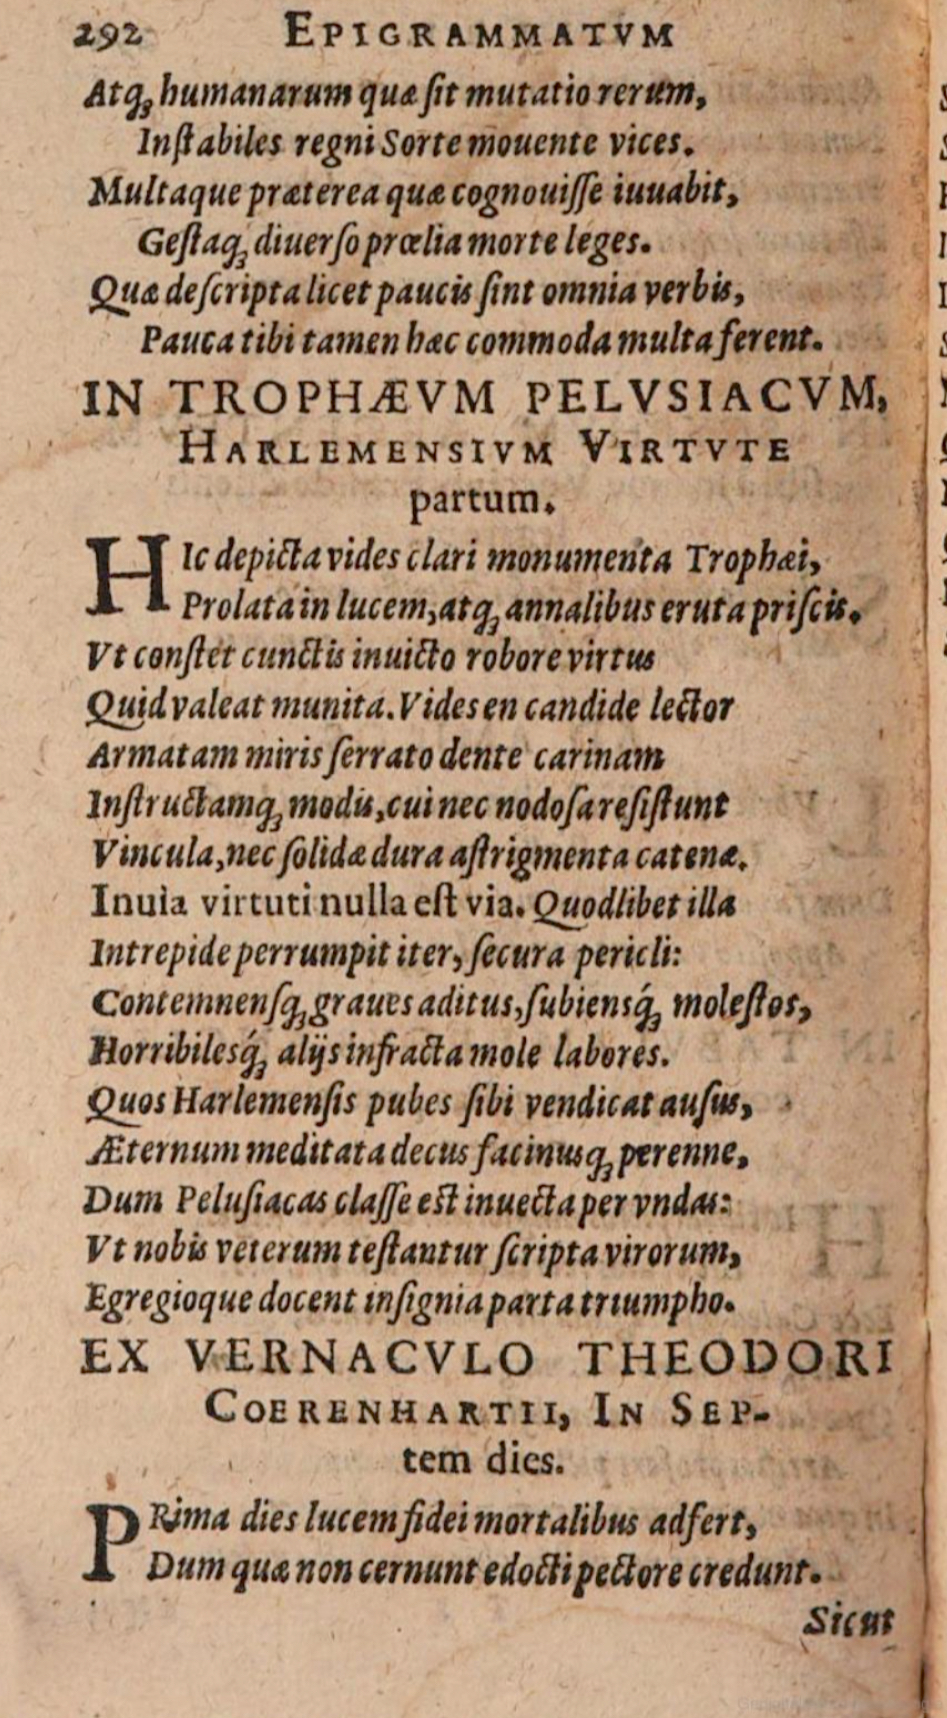 292 EPIGRAMMATVM
Atq́ꝫ humanarum quæ ſit mutatio rerum,
Inſtabiles regni Sorte mouente vices.
Multaque præterea quæ cognouiſſe iuuabit,
Geſtaqꝫ diuerſo prœlia morte leges.
Quæ deſcripta licet paucis ſint omnia verbis,
Pauca tibi tamen hæc commoda multa ferent.
IN TROPHÆVM PELVSIACVM,
HARLEMENSIVM VIRTVTE
partum.
HIc depicta vides clari monumenta Trophæi,
Prolata in lucem, atqꝫ annalibus eruta priſcis.
Vt conſtet cunctis inuicto robore virtus
Quid valeat munita. Vides en candide lector
Armatam miris ſerrato dente carinam
Inſtructamqꝫ modis, cui nec nodoſa reſiſtunt
Vincula, nec ſolidæ dura aſtrigmenta catenæ.
Inuia virtuti nulla eſt via. Quodlibet illa
Intrepide perrumpit iter, ſecura pericli:
Contemnenſqꝫ graues aditus, ſubiensq́ꝫ moleſtos,
Horribilesq́ꝫ alijs infracta mole labores.
Quos Harlemenſis pubes ſibi vendicat auſus,
Æternum meditata decus facinusqꝫ perenne,
Dum Peluſiacas claſſe eſt inuecta per vndas:
Vt nobis veterum teſtantur ſcripta virorum,
Egregioque docent inſignia parta triumpho.
EX VERNACVLO THEODORI
COERENHARTII, IN SEP-
tem dies.
PRima dies lucem fidei mortalibus adfert,
Dum quæ non cernunt edocti pectore credunt.
Sicut